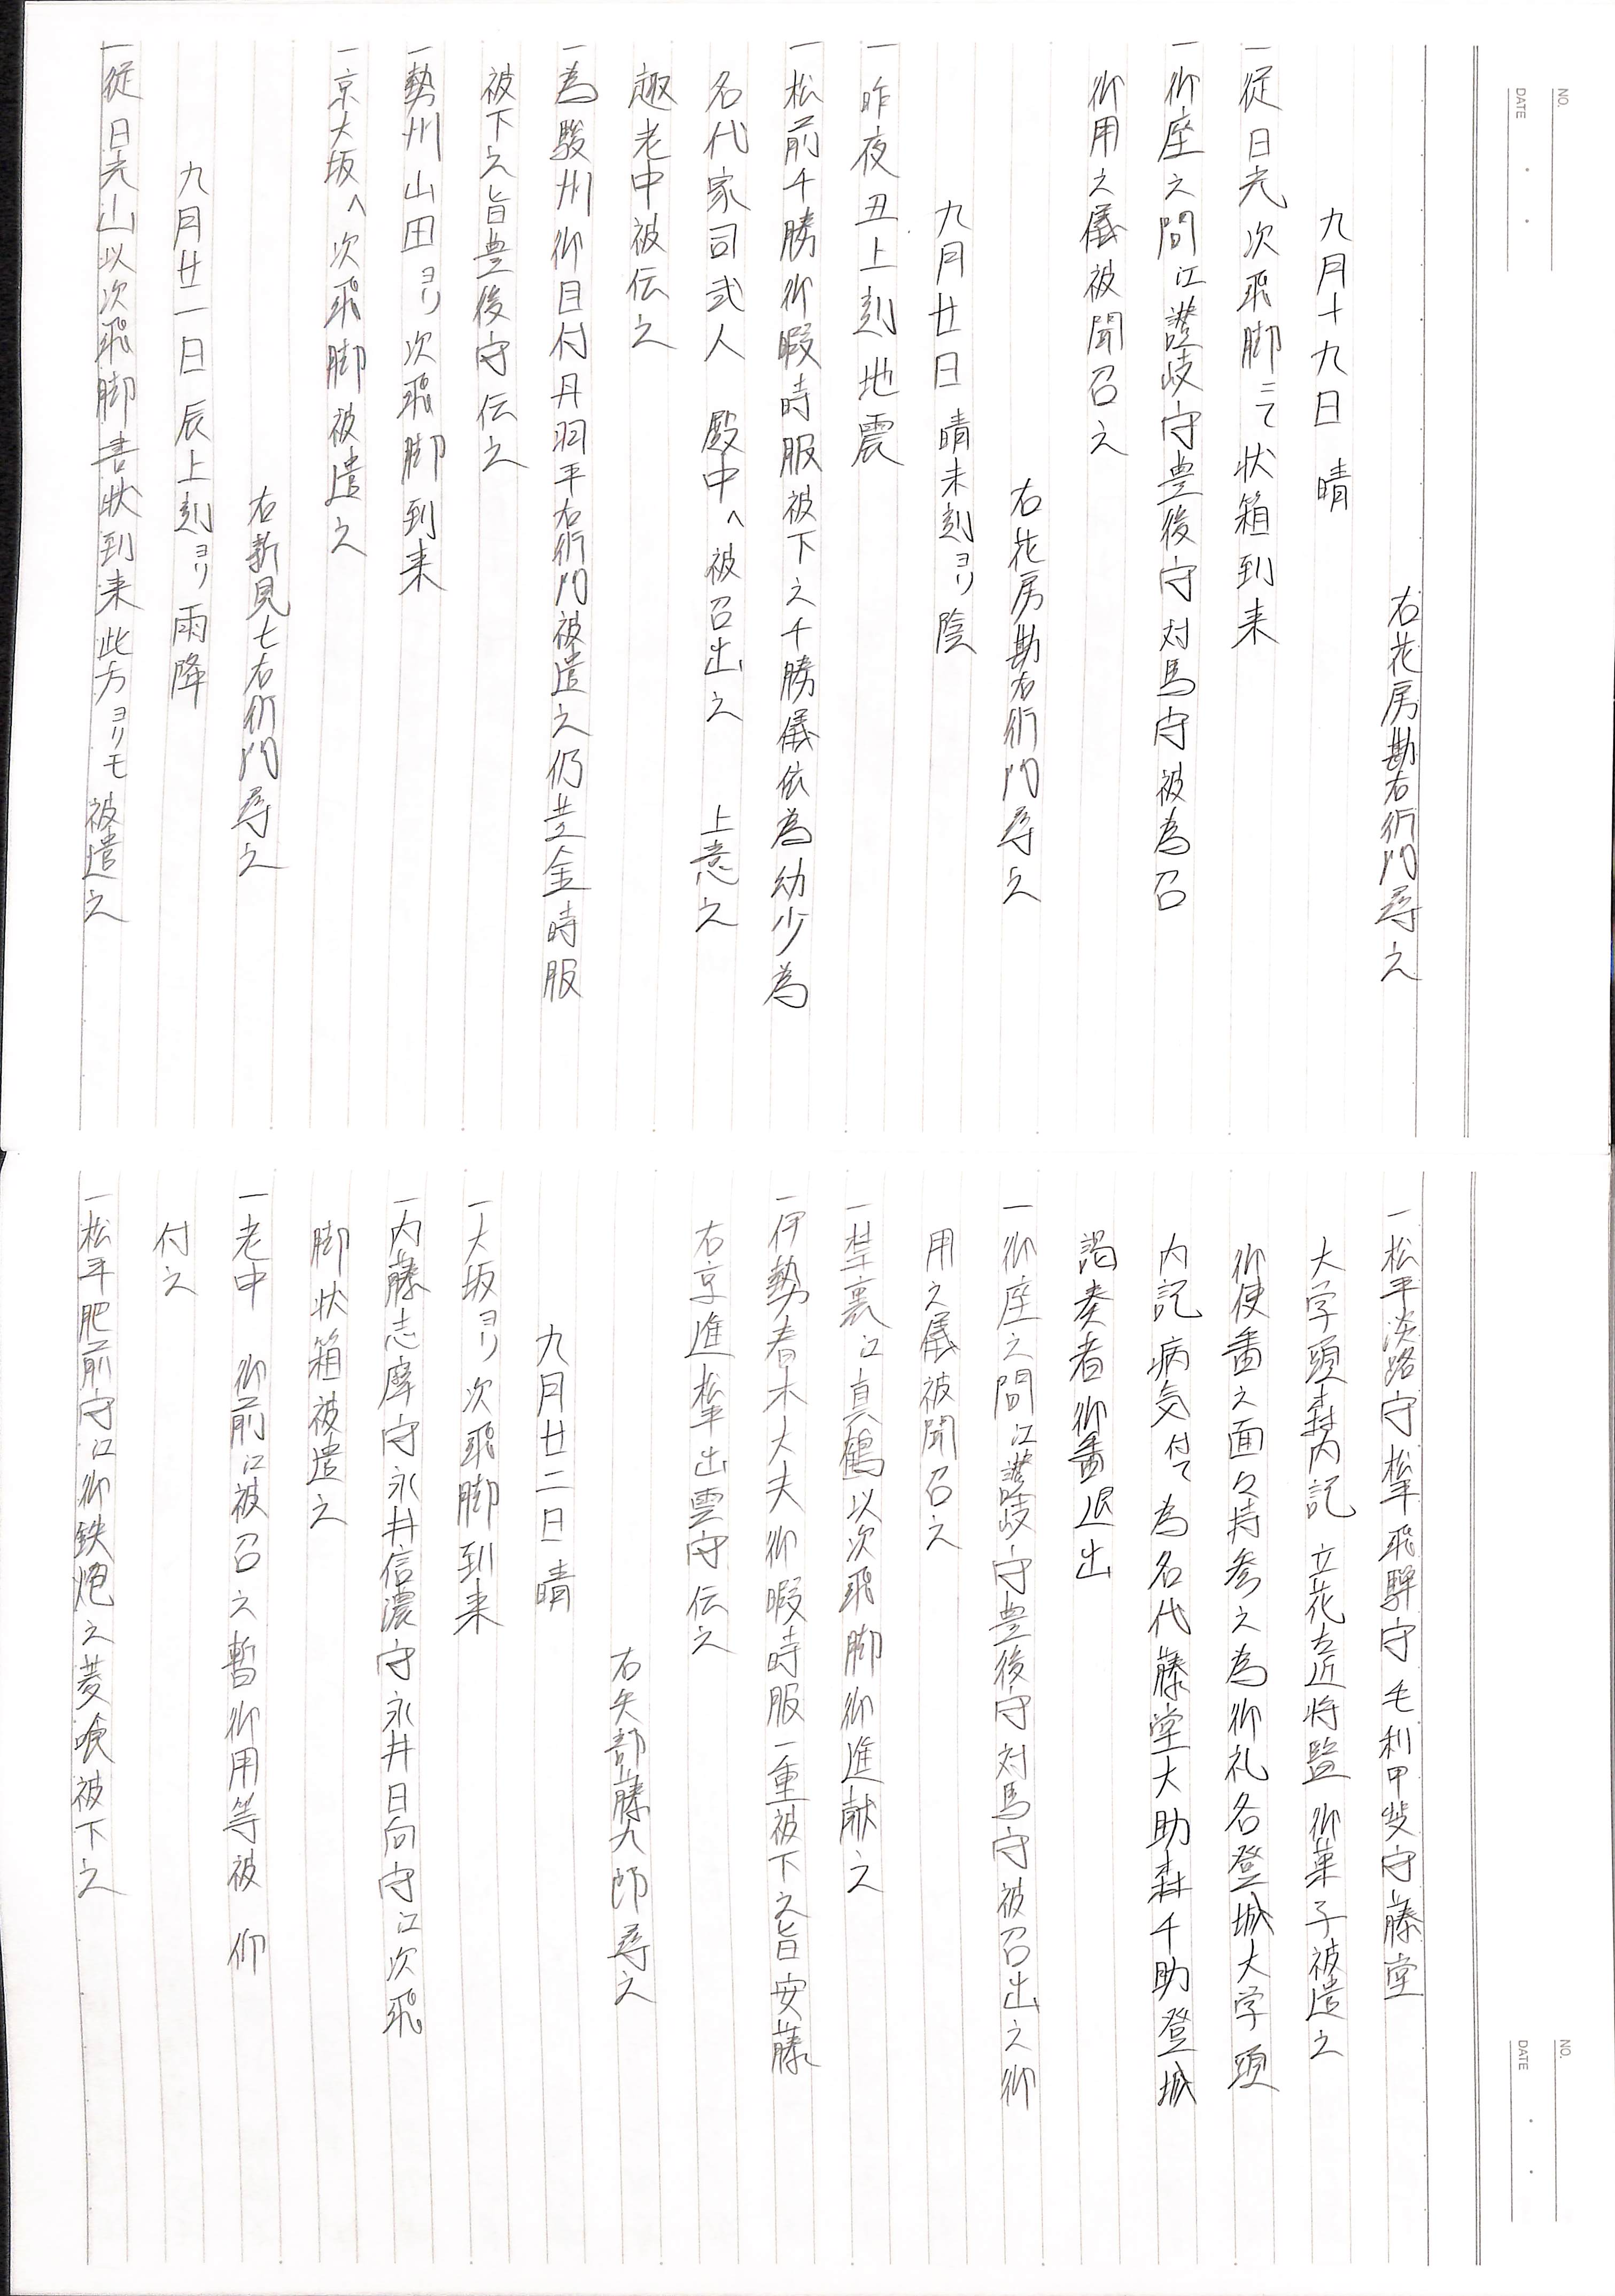 NO.
DATE
右花房勘右衛門尋之
九月十九日 晴
一従日光次飛脚ニて状箱到来
一御座之間江讃岐守豊後守対馬守被為召
御用之儀被聞召之
右花房勘右衛門尋之
九月廿日 晴未刻ヨリ陰
一昨夜丑上刻地震
一松前千勝御暇時服被下之千勝儀依為幼少為
名代家司弐人 殿中へ被召出之 上意之
趣老中被伝之
一為駿州御目付丹羽平右衛門被遣之仍黄金時服
被下之旨豊後守伝之
一勢州山田ヨリ次飛脚到来
一京大坂へ次飛脚被遣之
右新見七右衛門尋之
九月廿一日 辰上刻ヨリ雨降
一従日光山以次飛脚書状到来此方ヨリモ被遣之
NO.
DATE
一松平淡路守松平飛騨守毛利甲斐守藤堂
大学頭森内記立花左近将監御菓子被遣之
御使番之面々持参之為御礼各登城大学頭
内記病気付て為名代藤堂大助森千助登城
謁奏者御番退出
一御座之間江讃岐守豊後守対馬守被召出之御
用之儀被聞召之
一禁裏江真鶴以次飛脚御進献之
一伊勢春木大夫御暇時服一重被下之旨安藤
右京進松平出雲守伝之
右矢部藤九郎尋之
九月廿二日 晴
一大坂ヨリ次飛脚到来
一内藤志摩守永井信濃守永井日向守江次飛
脚状箱被遣之
一老中 御前江被召之暫御用等被 仰
付之
一松平肥前守江御鉄炮之菱喰被下之